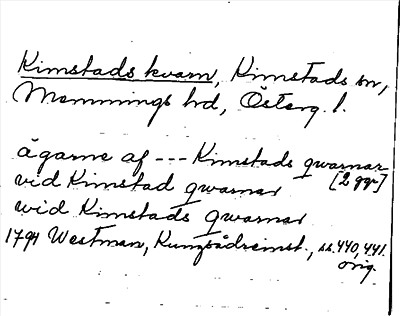 Kimstads kvarn, Kimstads sn,
Memmings hd, Österg. l.
ägarne af --- Kimstads qwarnar
vid Kimstad qwarnar [2 ggr]
wid Kimstads qwarnar
1794 Westman, Kungsådreinst., ss. 440, 441.
orig.